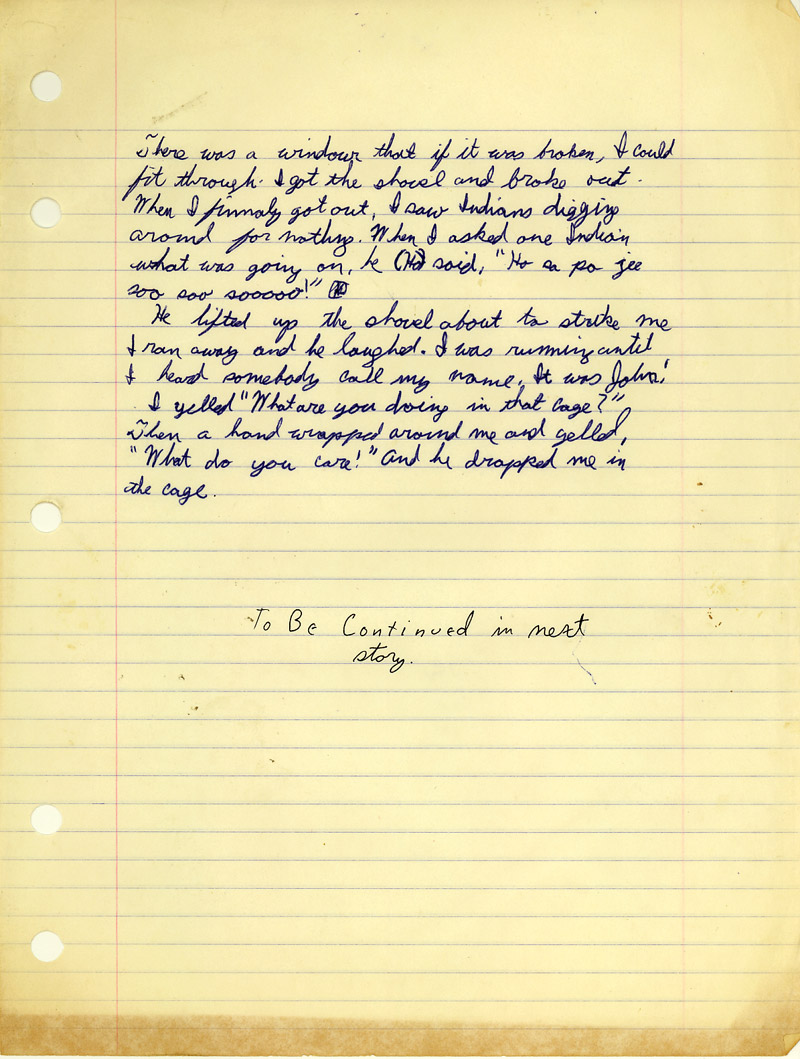 There was a windowr that if it was broken, I could
fit through. I got the shovel and broke out.
When I finnaly got out, I saw Indians digging
around for nothing. When I asked one Indian
what was going on, he said, "Ho sa po jee
soo soo sooooo!"
He lifted up the shovel about to strike me
I ran away and he laughed. I was running until
I heard somebody call my name. It was John!
I yelled "What are you doing in that cage?"
Then a hand wrapped around me and yelled,
"What do you care!" And he dropped me in
the cage.
To Be Continued in next
story.